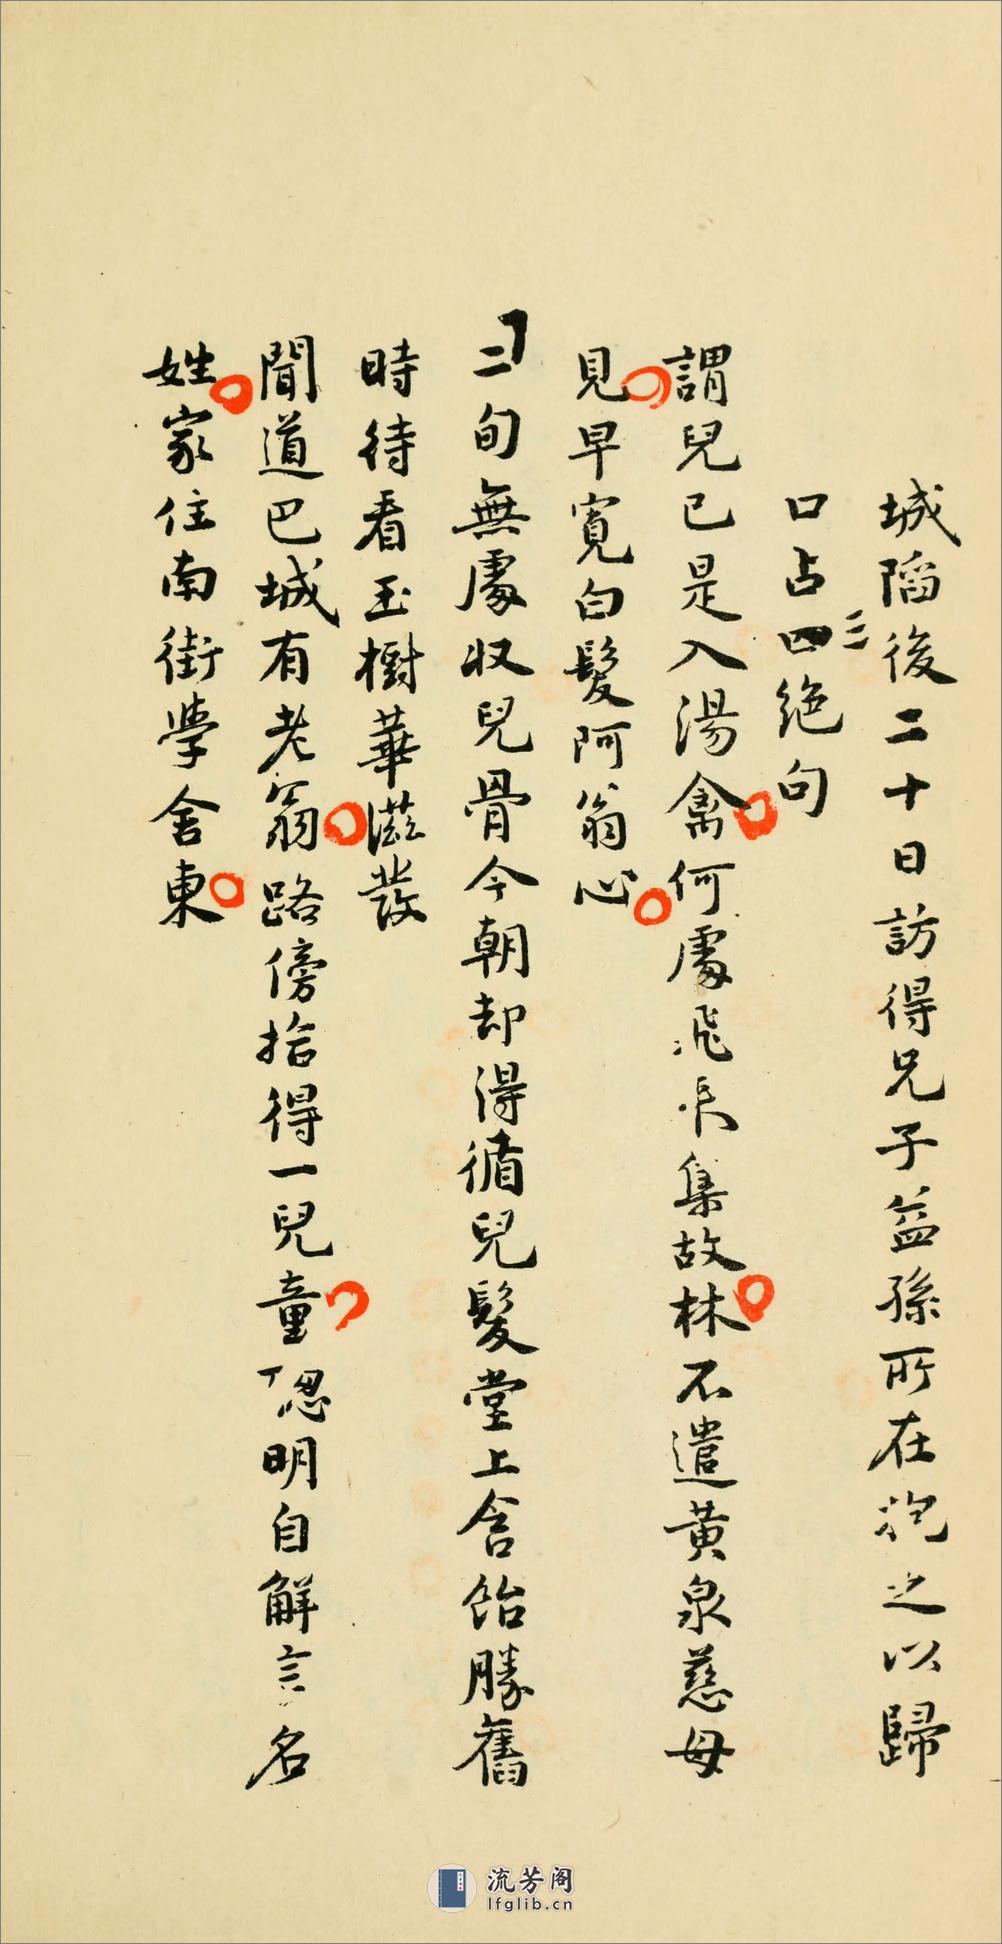 城陷後二十日訪得兄子益孫所在抱之以歸
口占四三絕句
謂兒已是入湯禽何處飛來集故林不遣黃泉慈母
見早寬白髮阿翁心
二旬無處收兒骨今朝却得循兒髮堂上含飴勝舊
時待看玉樹華滋發
聞道巴城有老翁路傍拾得一兒童聰明自解言名
姓家住南街學舍東
流芳阁
lfglib.cn